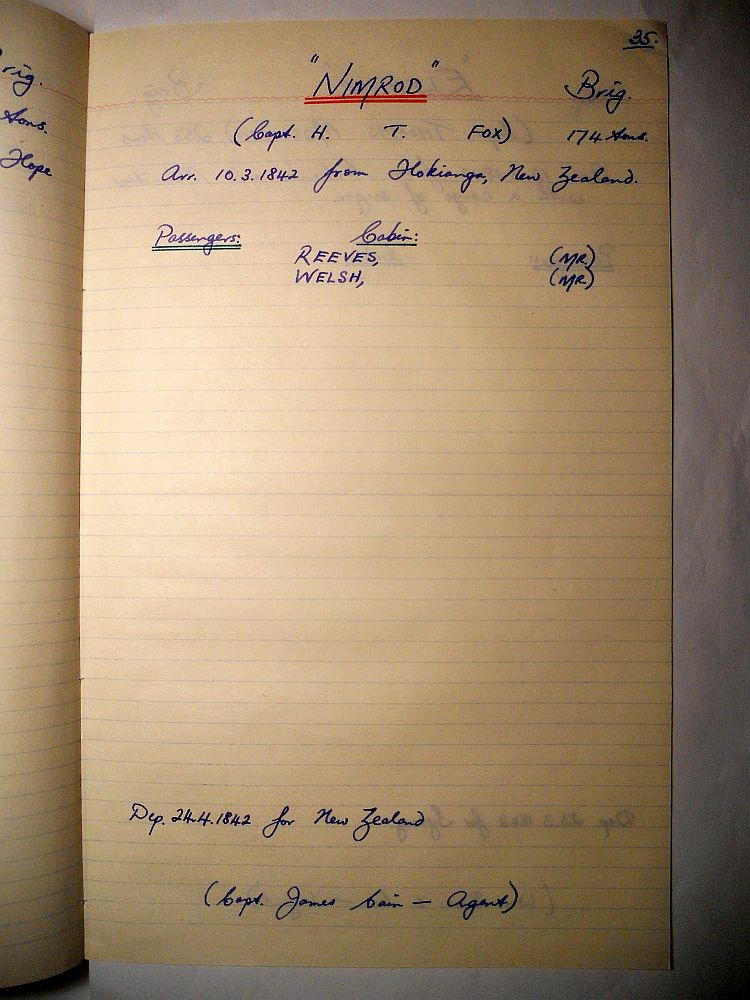 35.
"NIMROD" Brig.
(Capt. H. T. FOX) 174 tons.
Arr. 10.3.1842 from Hokianga, New Zealand.
Passengers: Cabin:
REEVES, (MR.)
WELSH, (MR.)
Dep. 24.4.1842 for New Zealand
(Capt. James Cain — Agent)
rig.
tons.
Hope